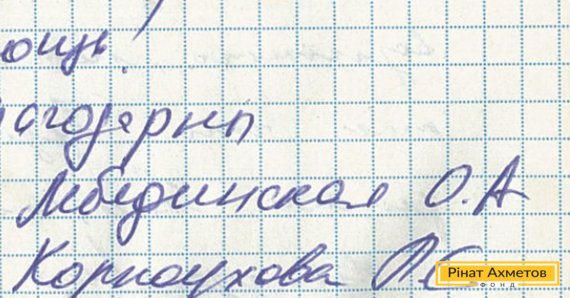 ощь!
агодарны
Лебединская О.А
Корноухова
Рінат Ахметов
ФОНД